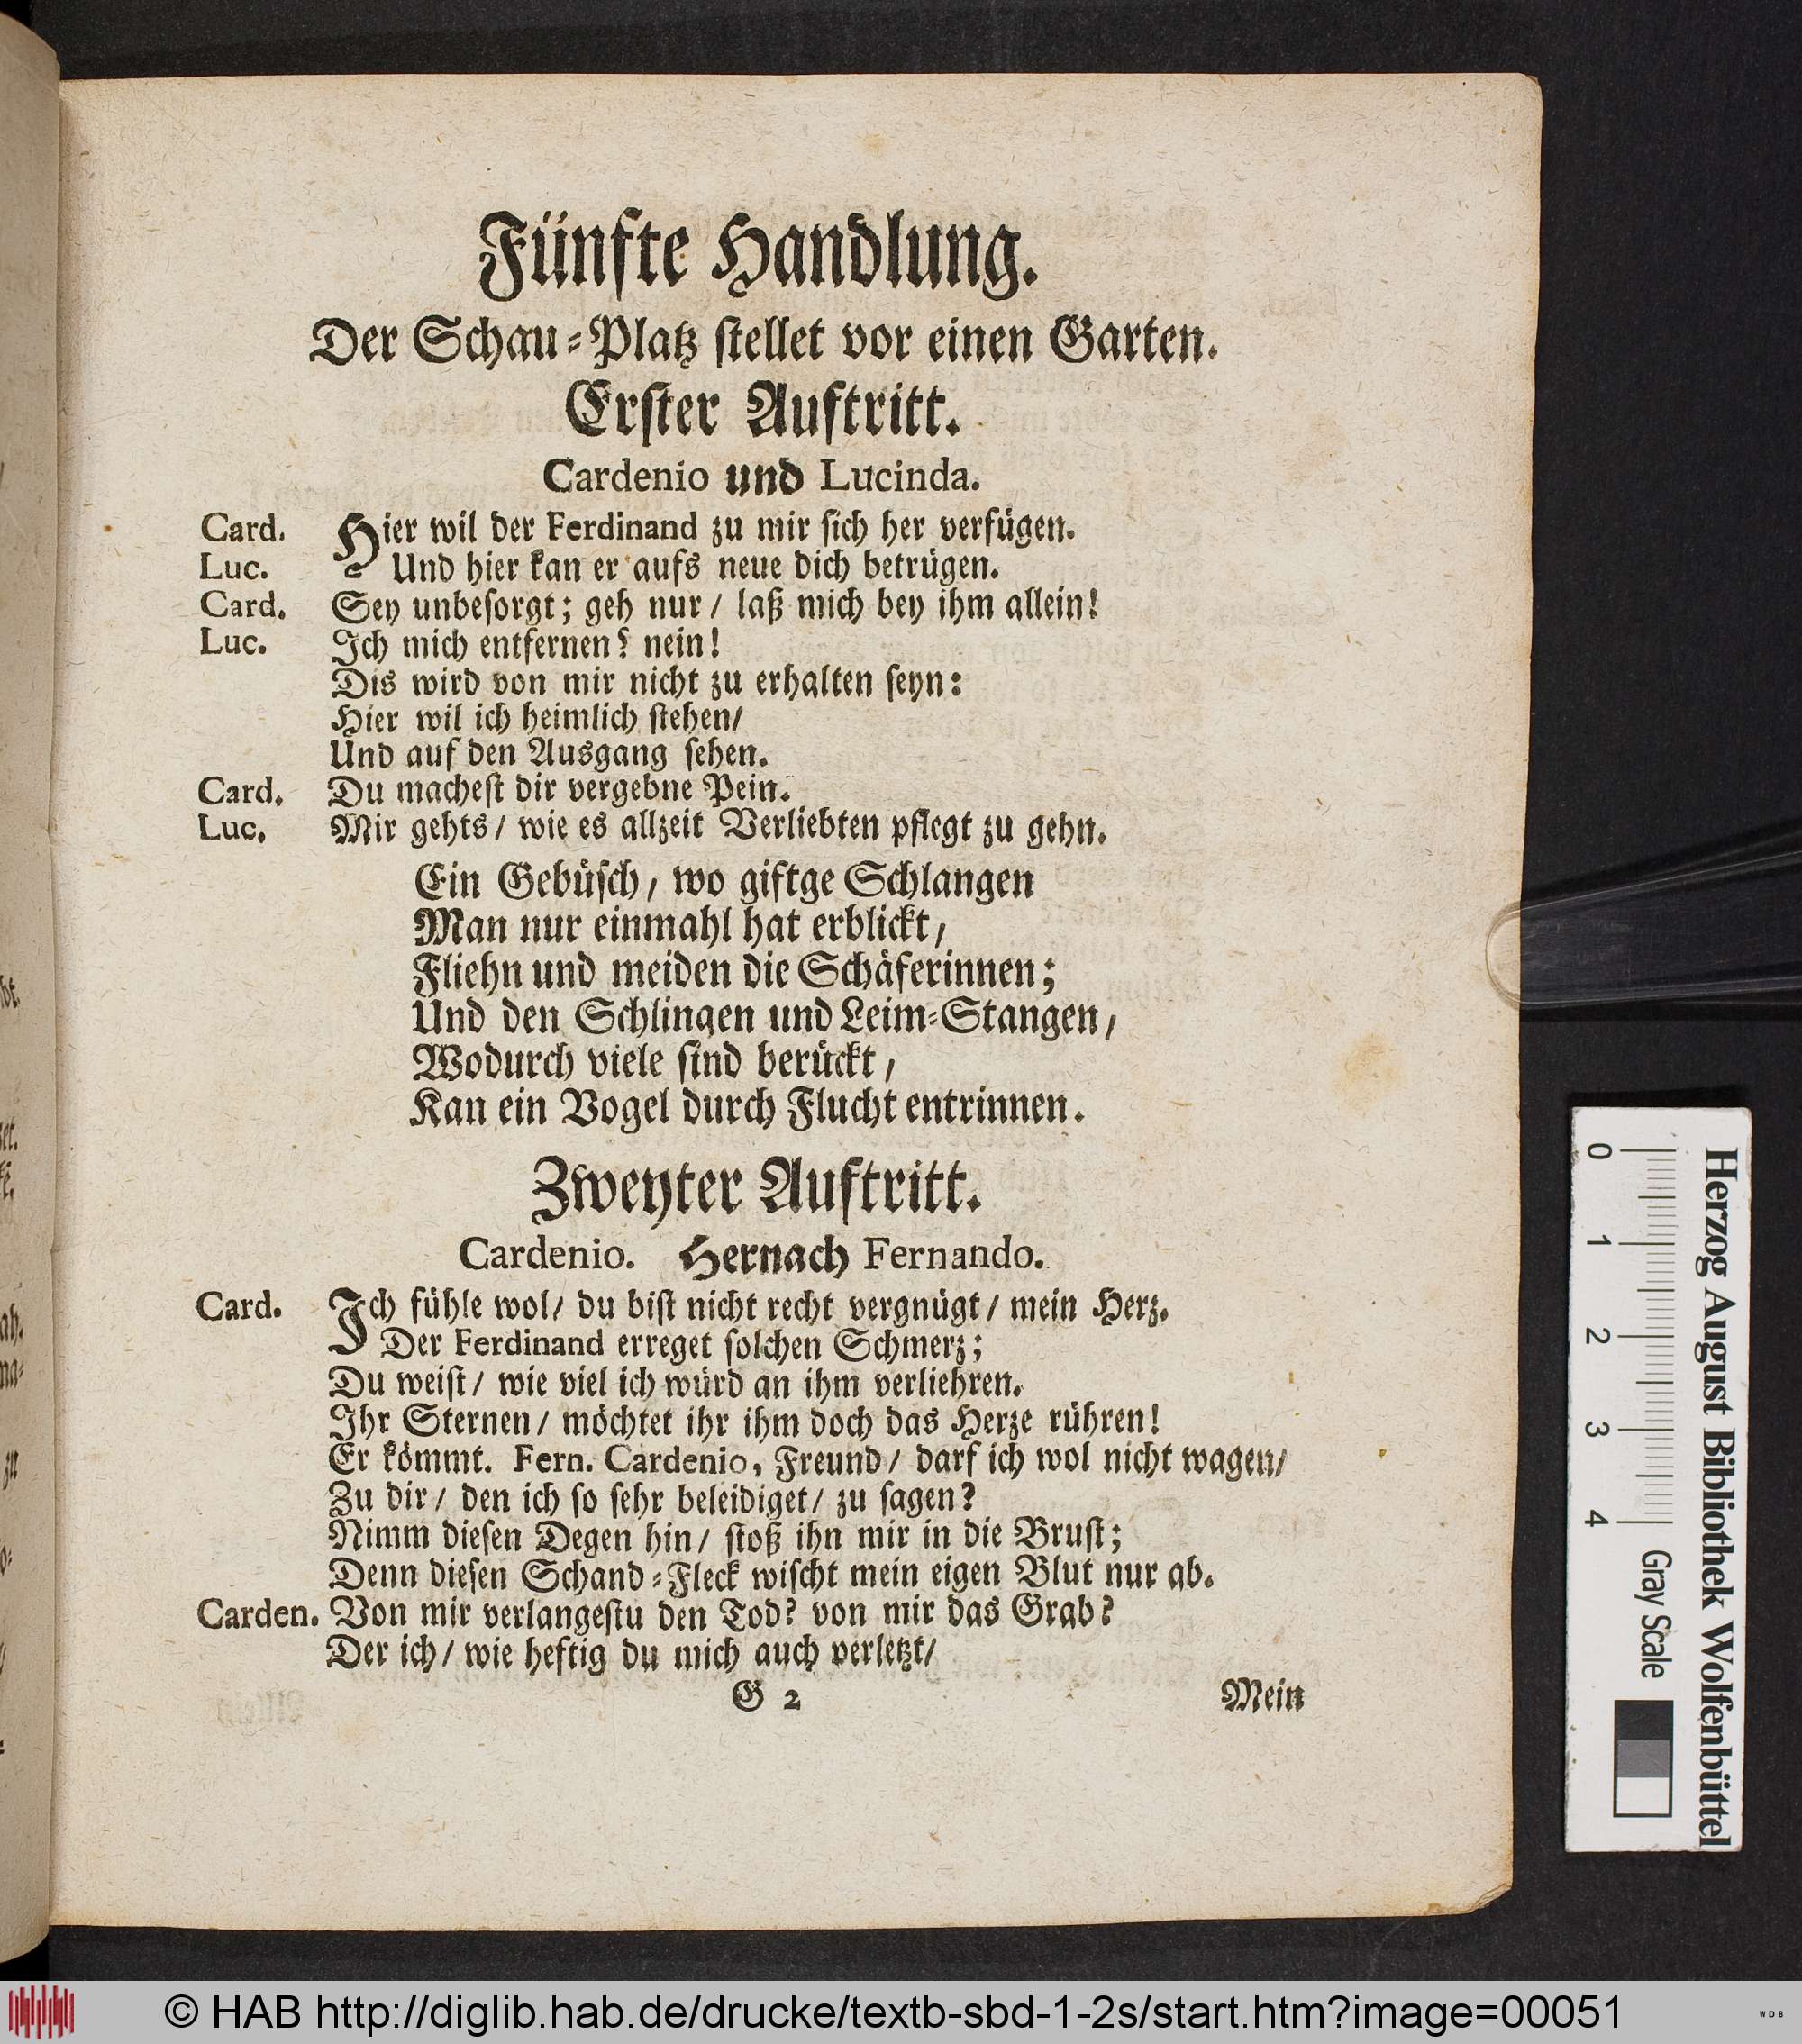 Fünfte Handlung.
Der Schau-Platz ſtellet vor einen Garten.
Erſter Auftritt.
Cardenio und Lucinda.
Card. Hier wil der Ferdinand zu mir ſich her verfügen.
Luc. Und hier kan er aufs neue dich betrügen.
Card. Sey unbeſorgt; geh nur / laß mich bey ihm allein!
Luc. Ich mich entfernen? nein!
Dis wird von mir nicht zu erhalten ſeyn:
Hier wil ich heimlich ſtehen/
Und auf den Ausgang ſehen.
Card. Du macheſt dir vergebne Pein.
Luc. Mir gehts / wie es allzeit Verliebten pflegt zu gehn.
Ein Gebüſch, wo giftge Schlangen
Man nur einmahl hat erblickt,
Fliehn und meiden die Schäferinnen;
Und den Schlingen und Leim-Stangen,
Wodurch viele ſind berückt,
Kan ein Vogel durch Flucht entrinnen.
Zweyter Auftritt.
Cardenio. Hernach Fernando.
Card. Ich fühle wol/ du biſt nicht recht vergnügt / mein Herz.
Der Ferdinand erreget ſolchen Schmerz;
Du weiſt / wie viel ich würd an ihm verliehren.
Ihr Sternen / möchtet ihr ihm doch das Herze rühren!
Er kömmt. Fern. Cardenio, Freund / darf ich wol nicht wagen/
Zu dir / den ich ſo ſehr beleidiget / zu ſagen?
Nimm dieſen Degen hin / ſtoß ihn mir in die Bruſt;
Denn dieſen Schand-Fleck wiſcht mein eigen Blut nur ab.
Carden. Von mir verlangeſtu den Tod? von mir das Grab?
Der ich / wie heftig du mich auch verletzt/
G 2 Mein
0 1 2 3 4
Herzog August Bibliothek Wolfenbüttel
Gray Scale
© HAB http://diglib.hab.de/drucke/textb-sbd-1-2s/start.htm?image=00051
WDB